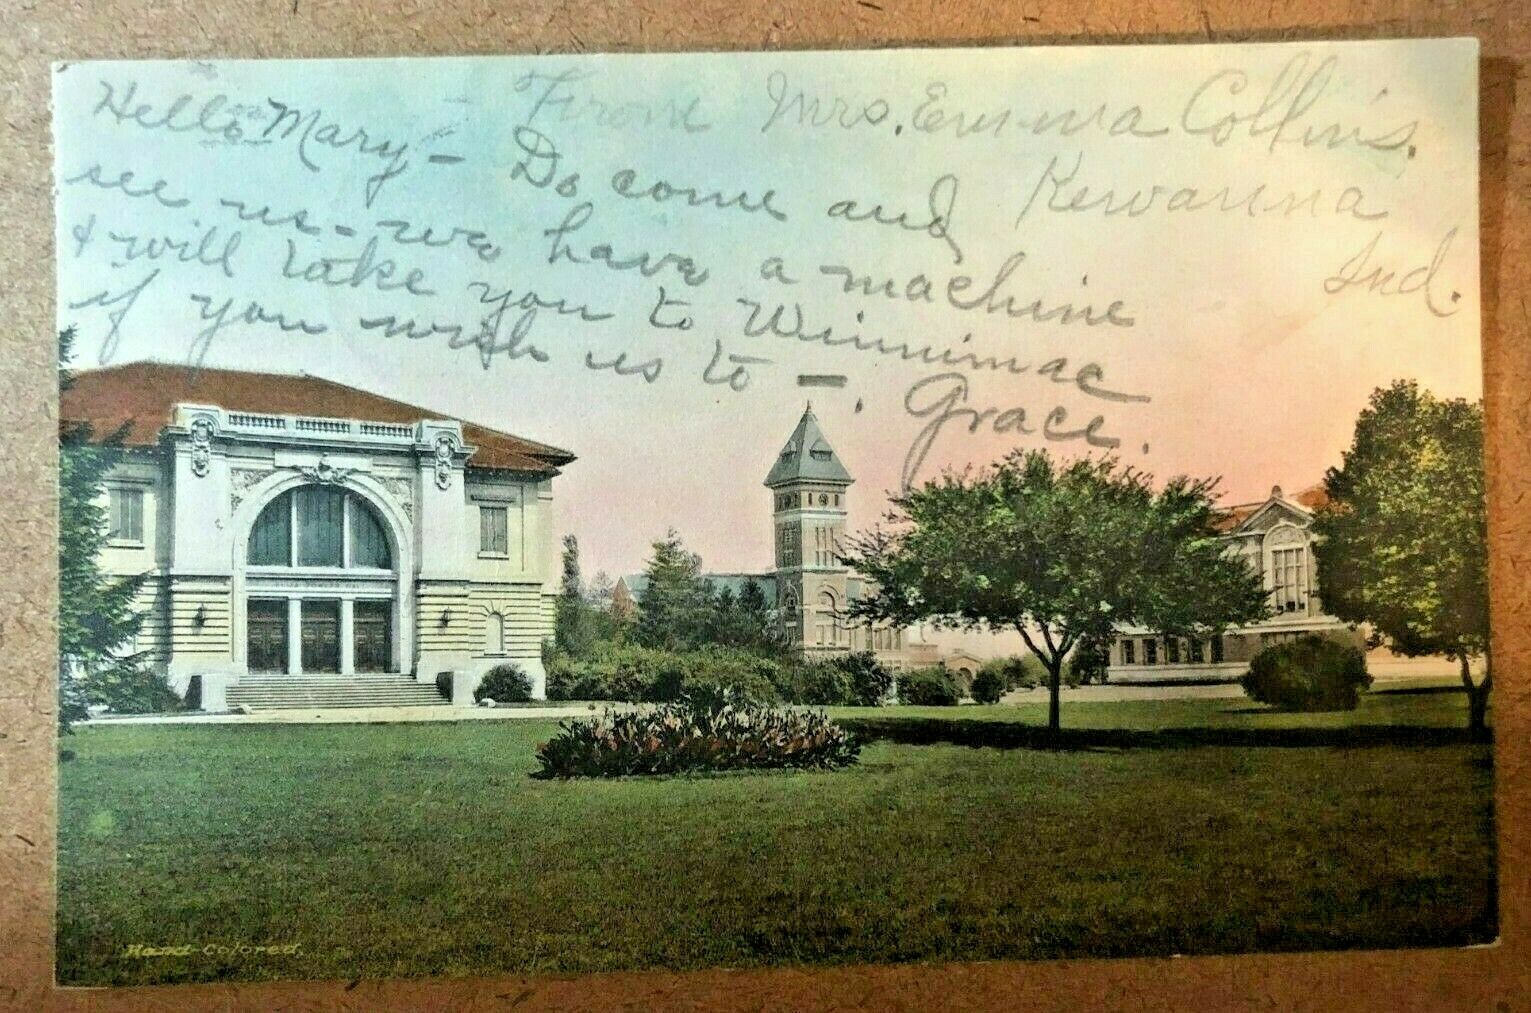 Hello Mary - Do come and
see us - we have a machine
& will take you to Winnimac
if you wish us to - . Grace.
From Mrs. Emma Collins.
Kewanna
Ind.
Hand-Colored.